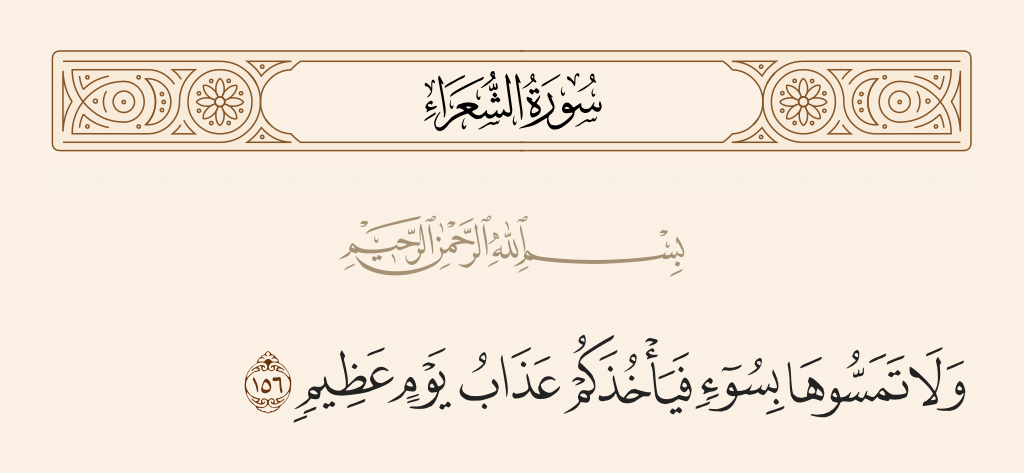 سُورَةُ الشُّعَرَاءِ
بِسْمِ ٱللَّهِ ٱلرَّحْمَٰنِ ٱلرَّحِيمِ
وَلَا تَمَسُّوهَا بِسُوٓءٍ فَيَأْخُذَكُمْ عَذَابُ يَوْمٍ عَظِيمٍ ١٥٦